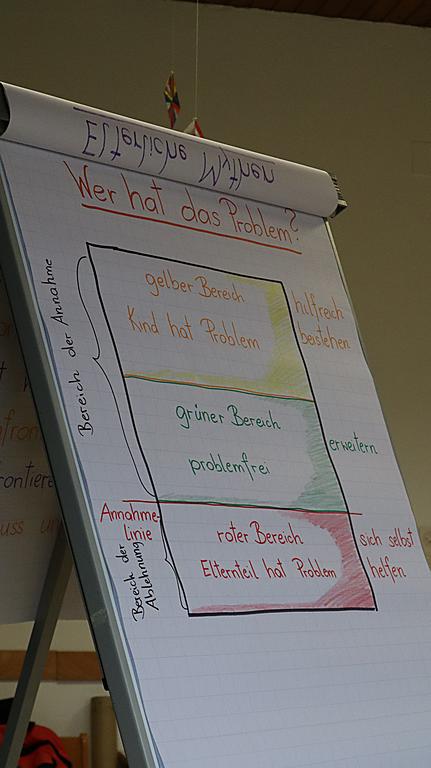 Elterliche Mythen
Wer hat das Problem?
Bereich der Annahme
gelber Bereich
Kind hat Problem
hilfreich
beistehen
grüner Bereich
problemfrei
erweitern
Annahme-
linie
Bereich der
Ablehnung
roter Bereich
Elternteil hat Problem
sich selbst
helfen